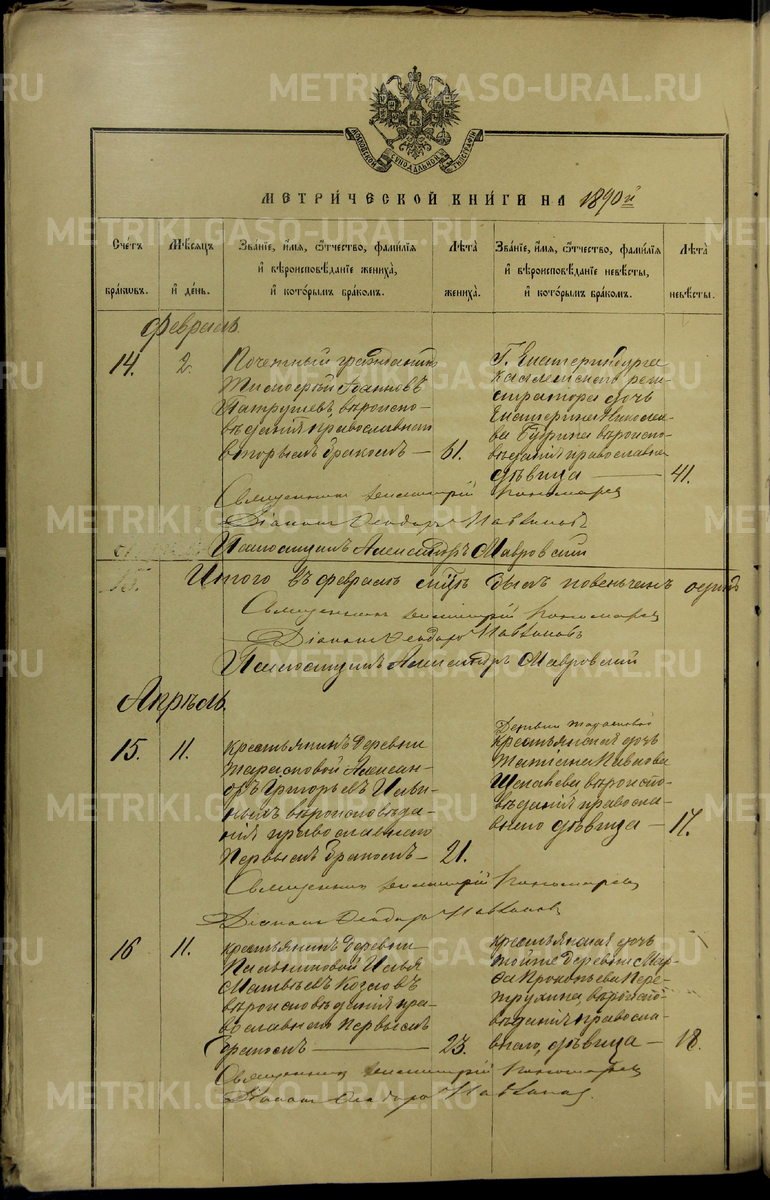 METRIKI.GASO-URAL.RU
МОСКОВСКОЙ СѴНОДАЛЬНОЙ ТИПОГРАФІИ
МЕТРИ́ЧЕСКОЙ КНИ́ГИ НА 1890й
Сче́тъ бра́ковъ.
Мѣ́сяцъ и҆ де́нь.
Зва́ніе, и҆́мя, ѻ҆́тчество, фамилія
и҆ вѣроисповѣ́даніе жениха̀,
и҆ кото́рымъ бра́комъ.
Лѣ́та жениха̀.
Зва́ніе, и҆́мя, ѻ҆́тчество, фамилія
и҆ вѣроисповѣ́даніе невѣ́сты,
и҆ кото́рымъ бра́комъ.
Лѣ́та невѣ́сты.
Февраль
14. 2.
Почетный гражданинъ
Тимофей Іоанновъ
Патрушевъ, вѣроиспо-
вѣданія православнаго
вторымъ бракомъ — 61.
Г. Екатеринбурга
коллежскаго реги-
стратора дочь
Екатерина Николае-
ва вѣроиспо-
вѣданія православна
дѣвица — 41.
Священникъ Димитрій Пономаревъ
Діаконъ Ѳеодоръ
Псаломщикъ Александръ Мавровскій
15.
Итого въ февралѣ м-цѣ былъ повѣнчанъ одинъ
Священникъ Димитрій Пономаревъ
Діаконъ Ѳеодоръ
Псаломщикъ Александръ Мавровскій
Апрѣль
15. 11.
крестьянинъ деревни
Тарасковой Алексан-
дръ Григорьевъ Ильи-
ныхъ вѣроисповѣда-
нія православнаго
первымъ бракомъ — 21.
Деревни Тарасковой
крестьянская дочь
Татіана Иванова
вѣроиспо-
вѣданія правосла-
внаго дѣвица — 17.
Священникъ Димитрій Пономаревъ
Діаконъ Ѳеодоръ
16 11.
крестьянинъ деревни
Пальниковой Илья
Матвѣевъ Козловъ
вѣроисповѣданія пра-
вославнаго первымъ
бракомъ — 23.
крестьянская дочь
тойже деревни Мар-
ѳа Прокопьева Пере-
трухина вѣроиспо-
вѣданія правосла-
внаго, дѣвица — 18.
Священникъ Димитрій Пономаревъ
Діаконъ Ѳеодоръ